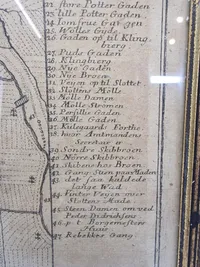 22. store Potter Gaden
23. lille Potter Gaden
24. Jomfrue Gat gen
25. Wolles Gyde
26. Gaden op til Kling
berg
27. Puds Gaden
28. Klingberg
29. Nye Gaden
30. Nye Broen
31. Veyen op til Slottet
32. Slottens Mölle
33. Mölle Dammen
34. Mölle Strömen
35. Persille Gaden
36. Mölle Gaden
37. Kulegaards Porthe
38. hvor Amtmandens
Secretair er
39. Söndre Skibbroen
40. Nörre Skibbroen
41. Skibenshos Broen
42. Gang Stien paa Maden
43. det saa kaldede
lange Wad
44. Vinter Veyen over
Slottens Made
45. Steen Dammen om ved
Peder Didrichsens
46. p. t. Borgemester
Huus
47. Rebekkes Gang